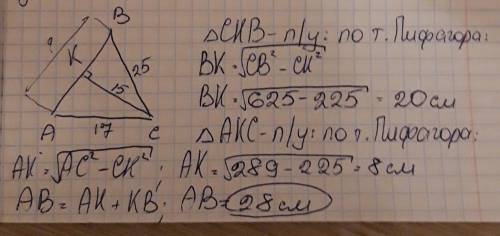 B
?
K
25
15
A
17
C
△CKB - п/у: по т. Пифагора:
BK = √CB² - CK²
BK = √625 - 225 = 20 см
△AKC - п/у: по т. Пифагора:
AK = √AC² - CK²; AK = √289 - 225 = 8 см
AB = AK + KB; AB = 28 см